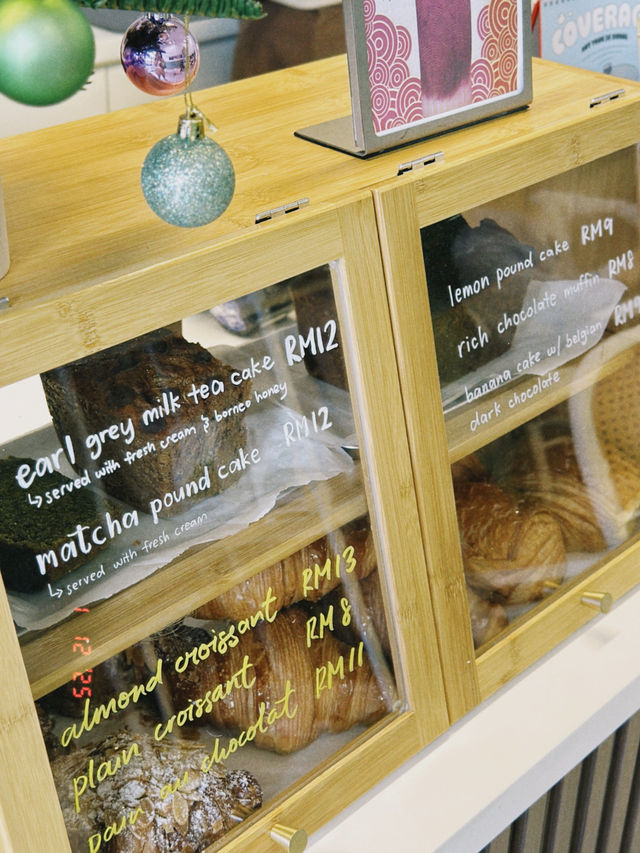 earl grey milk tea cake RM12
↳ served with fresh cream & borneo honey
matcha pound cake RM12
↳ served with fresh cream
almond croissant RM13
plain croissant RM8
pain au chocolat RM11
lemon pound cake RM9
rich chocolate muffin RM8
banana cake w/ belgian
dark chocolate
COVERAGE
1 12 '25